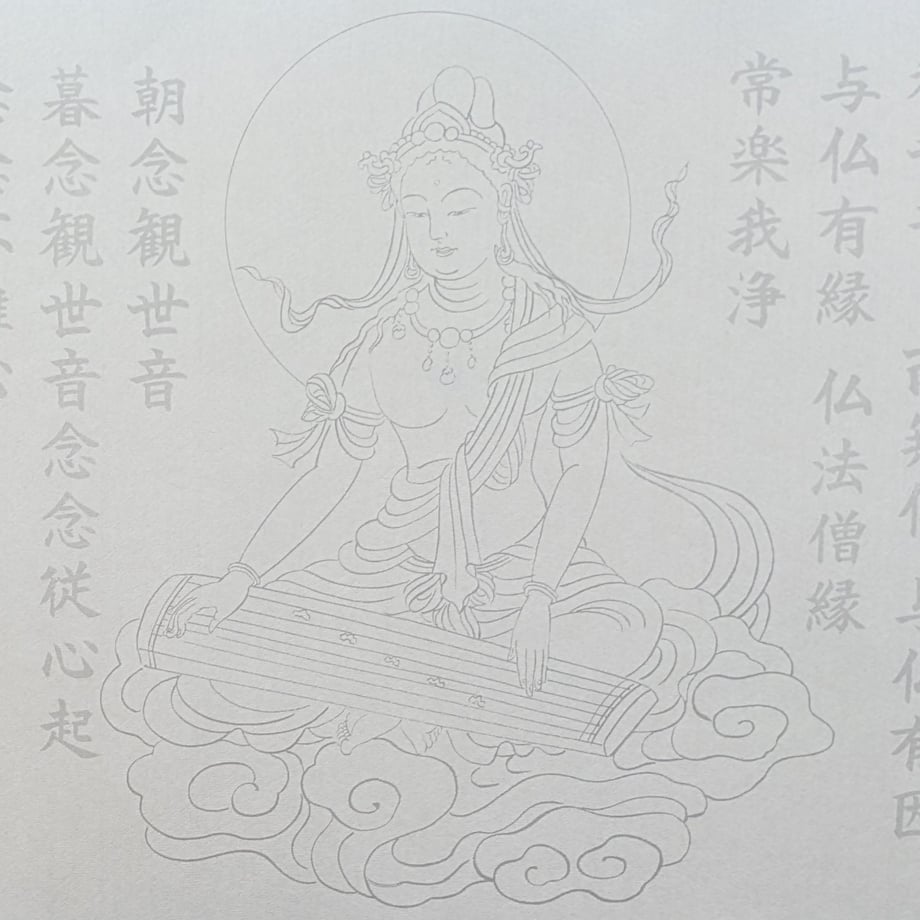 与仏有縁 仏法僧縁
常楽我浄
朝念観世音
暮念観世音念念従心起